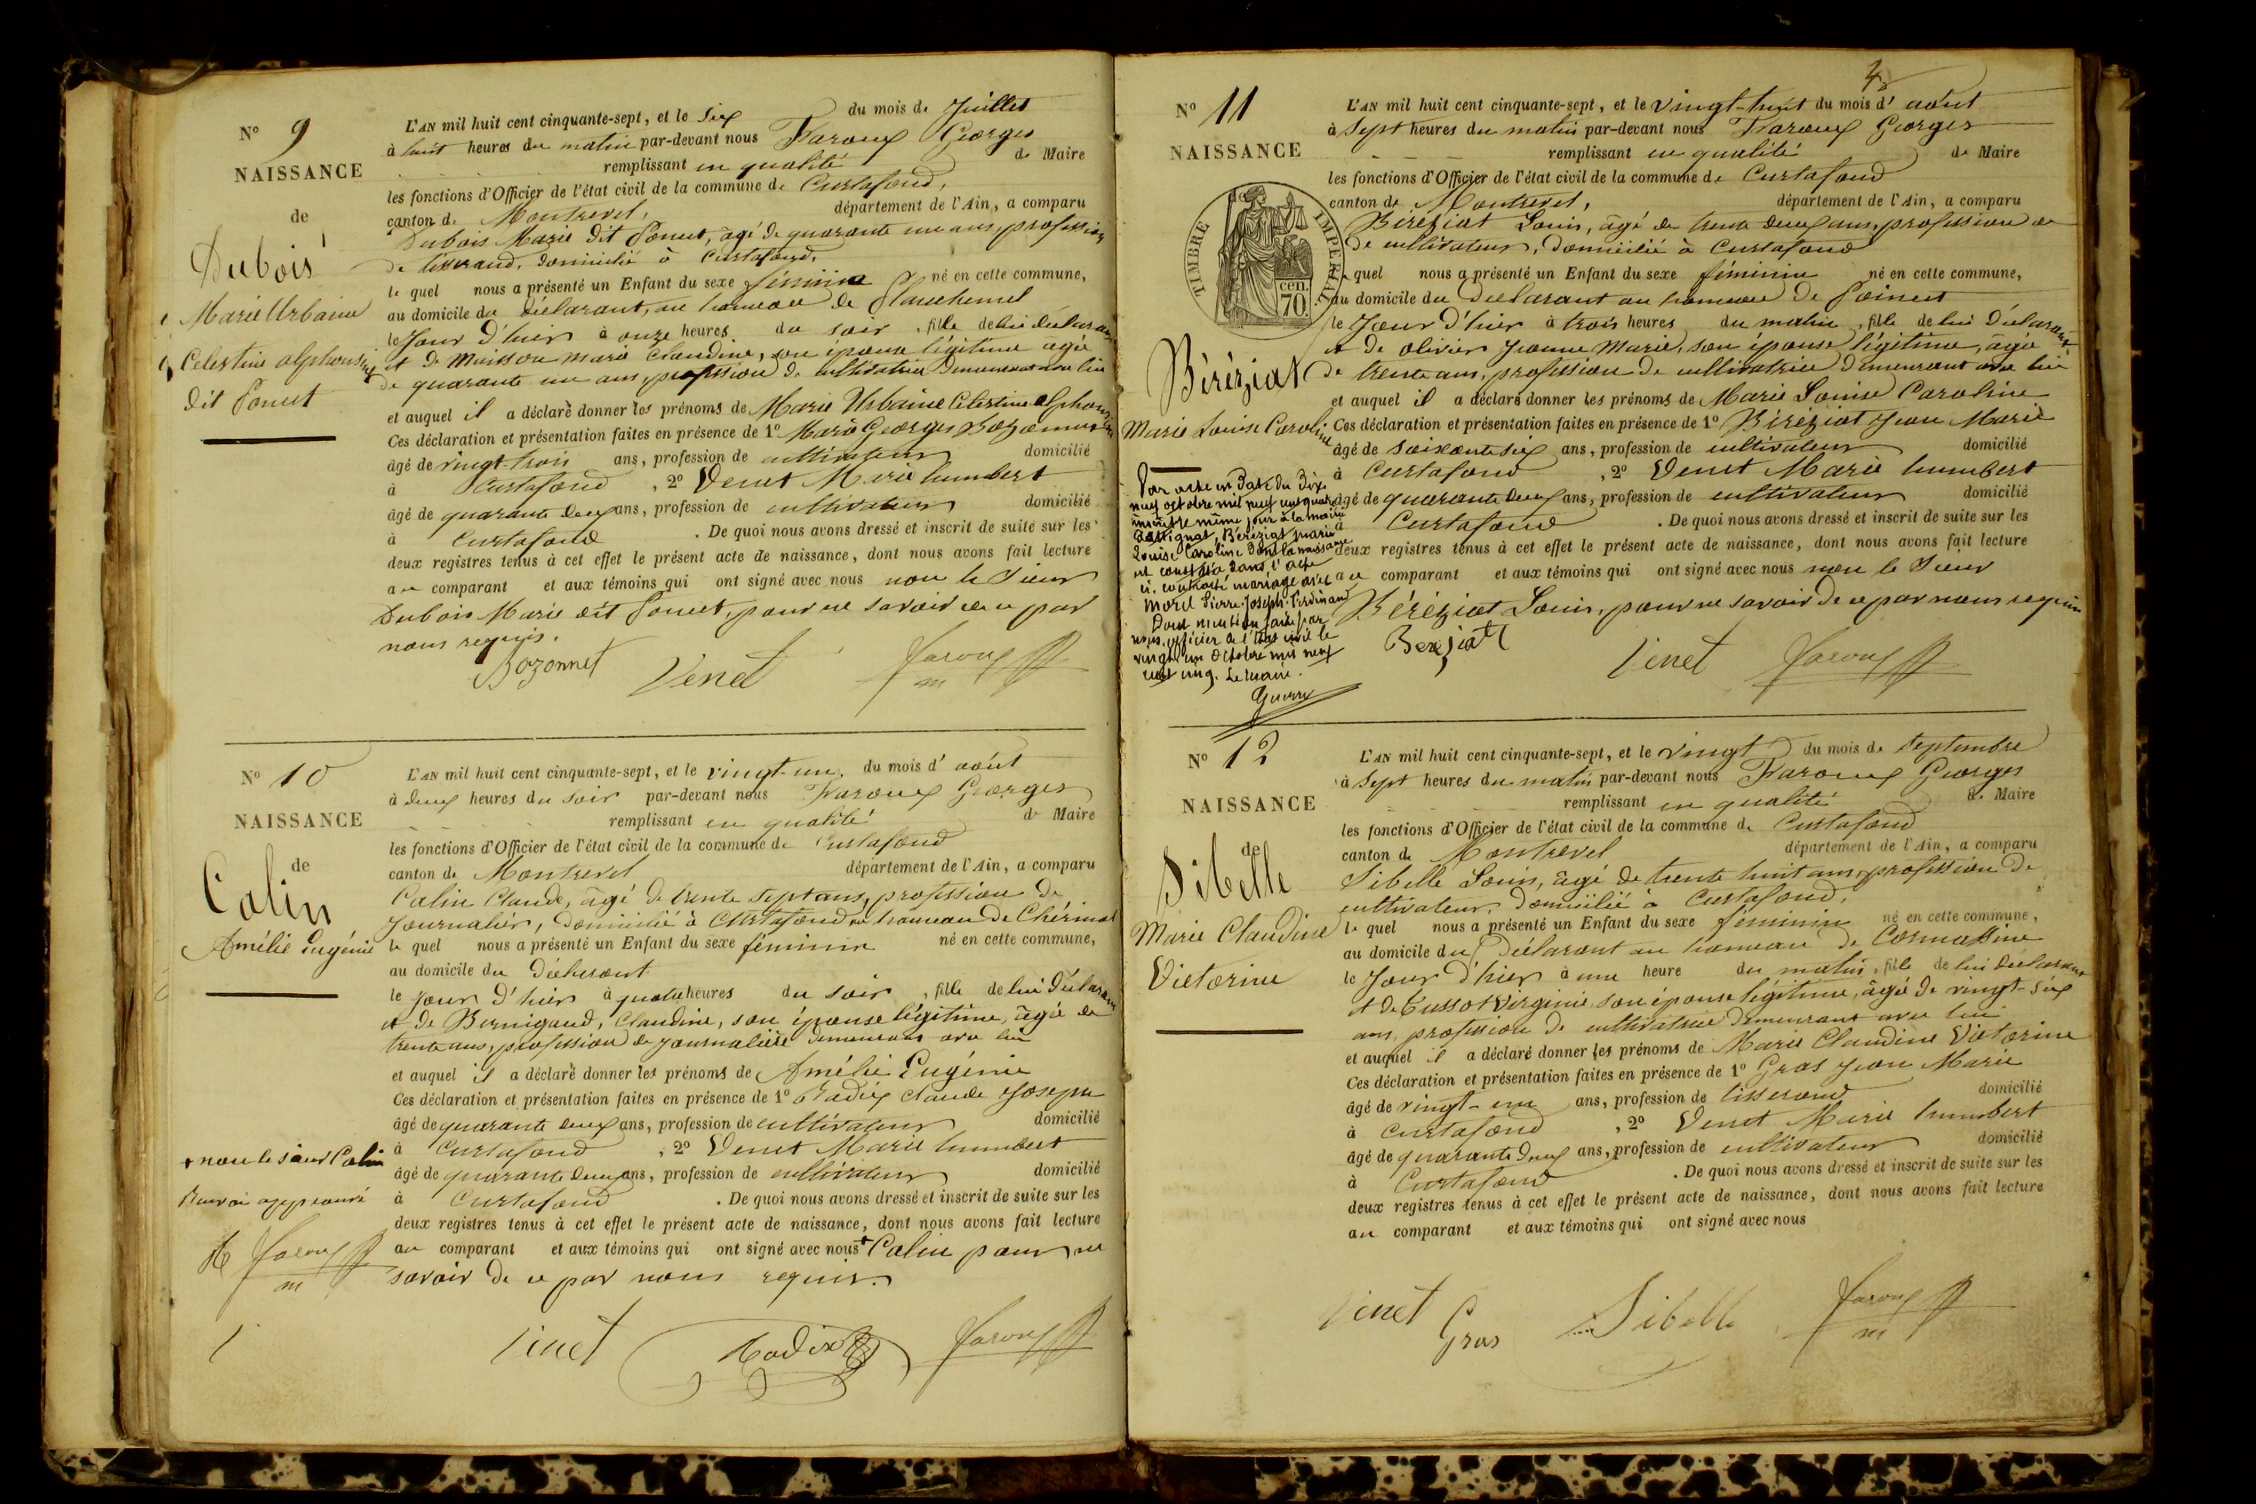 N° 9
NAISSANCE
de
Dubois
Marie Urbaine
Celestine alphonsine
dit Poncet
L'AN mil huit cent cinquante-sept, et le six du mois de Juillet
à huit heures du matin par-devant nous Faroux Georges
remplissant en qualité de Maire
les fonctions d'Officier de l'état civil de la commune de Curtafond,
canton de Montrevel, département de l'Ain, a comparu
Dubois Marie dit Poncet, âgé de quarante un ans, profession
de tisserand, domicilié à Curtafond,
le quel nous a présenté un Enfant du sexe féminin né en cette commune,
au domicile du déclarant, au hameau de
le Jour d'hier à onze heures du soir, fille de lui déclarant
et de Maisson marie Claudine, son épouse légitime agée
de quarante un ans, profession de cultivatrice demeurant avec lui
et auquel il a déclaré donner les prénoms de Marie Urbaine Celestine alphonsine
Ces déclaration et présentation faites en présence de 1° Marie Georges
âgé de vingt-trois ans, profession de cultivateur domicilié
à Curtafond, 2° Venet Marie humbert
âgé de quarante deux ans, profession de cultivateur domicilié
à Curtafond. De quoi nous avons dressé et inscrit de suite sur les
deux registres tenus à cet effet le présent acte de naissance, dont nous avons fait lecture
au comparant et aux témoins qui ont signé avec nous non le sieur
Dubois Marie dit Poncet, pour ne savoir de ce par
nous requis.
Bozonnet Venet Faroux
m
N° 10
NAISSANCE
de
Calin
Amélie Eugénie
+ non le sieur Calin
Renvoi approuvé
Faroux
m
L'AN mil huit cent cinquante-sept, et le vingt-un, du mois d'août
à deux heures du soir par-devant nous Faroux Georges
remplissant en qualité de Maire
les fonctions d'Officier de l'état civil de la commune de Curtafond
canton de Montrevel département de l'Ain, a comparu
Calin Claude, âgé de trente sept ans, profession de
Journalier, domicilié à Curtafond au hameau de
le quel nous a présenté un Enfant du sexe féminin né en cette commune,
au domicile du déclarant
le jour d'hier à quatre heures du soir, fille de lui déclarant
et de Bernigaud, Claudine, son épouse légitime, âgée de
trente ans, profession de journalière demeurant avec lui
et auquel il a déclaré donner les prénoms de Amélie Eugénie
Ces déclaration et présentation faites en présence de 1° Radix Claude Joseph
âgé de quarante deux ans, profession de cultivateur domicilié
à Curtafond, 2° Venet Marie humbert
âgé de quarante deux ans, profession de cultivateur domicilié
à Curtafond. De quoi nous avons dressé et inscrit de suite sur les
deux registres tenus à cet effet le présent acte de naissance, dont nous avons fait lecture
au comparant et aux témoins qui ont signé avec nous + Calin pour ne
savoir de ce par nous requis.
Venet Radix Faroux
N° 11
NAISSANCE
TIMBRE IMPERIAL
cen.
70.
Béréziat
Marie Louise Caroline
Par acte en Date du Dix
neuf octobre mil neuf cent quatre
inscrit le même jour à la mairie
Attignat, Béréziat Marie
Louise Caroline Dont la naissance
est constatée dans l'acte
ci contracté mariage avec
Morel Pierre-Joseph-Ferdinand
Dont mention faite par
nous, officier de l'état civil le
vingt un Octobre mil neuf
cent cinq. Le Maire.
4
L'AN mil huit cent cinquante-sept, et le vingt-huit du mois d'août
à sept heures du matin par-devant nous Faroux Georges
remplissant en qualité de Maire
les fonctions d'Officier de l'état civil de la commune de Curtafond
canton de Montrevel, département de l'Ain, a comparu
Béréziat Louis, âgé de trente deux ans, profession de
de cultivateur, domicilié à Curtafond
le quel nous a présenté un Enfant du sexe féminin né en cette commune,
au domicile du déclarant au hameau de
le Jour d'hier à trois heures du matin, fille de lui déclarant
et de olivier Jeanne Marie, son épouse légitime, agée
de trente ans, profession de cultivatrice demeurant avec lui
et auquel il a déclaré donner les prénoms de Marie Louise Caroline
Ces déclaration et présentation faites en présence de 1° Béréziat Jean Marie
âgé de soixante six ans, profession de cultivateur domicilié
à Curtafond, 2° Venet Marie humbert
âgé de quarante deux ans, profession de cultivateur domicilié
à Curtafond. De quoi nous avons dressé et inscrit de suite sur les
deux registres tenus à cet effet le présent acte de naissance, dont nous avons fait lecture
au comparant et aux témoins qui ont signé avec nous non le sieur
Béréziat Louis, pour ne savoir de ce par nous requis
Venet Faroux
N° 12
NAISSANCE
de
Sibelle
Marie Claudine
Victorine
L'AN mil huit cent cinquante-sept, et le vingt du mois de septembre
à sept heures du matin par-devant nous Faroux Georges
remplissant en qualité de Maire
les fonctions d'Officier de l'état civil de la commune de Curtafond
canton de Montrevel département de l'Ain, a comparu
Sibelle Louis, âgé de trente huit ans, profession de
cultivateur, domicilié à Curtafond,
le quel nous a présenté un Enfant du sexe féminin né en cette commune,
au domicile du déclarant au hameau de
le Jour d'hier à une heure du matin, fille de lui déclarant
et de Tussot Virginie son épouse légitime, âgée de vingt-six
ans, profession de cultivatrice demeurant avec lui
et auquel il a déclaré donner les prénoms de Marie Claudine Victorine
Ces déclaration et présentation faites en présence de 1° Gras Jean Marie
âgé de vingt-un ans, profession de tisserand domicilié
à Curtafond, 2° Venet Marie humbert
âgé de quarante deux ans, profession de cultivateur domicilié
à Curtafond. De quoi nous avons dressé et inscrit de suite sur les
deux registres tenus à cet effet le présent acte de naissance, dont nous avons fait lecture
au comparant et aux témoins qui ont signé avec nous
Venet Gras Sibelle Faroux
m